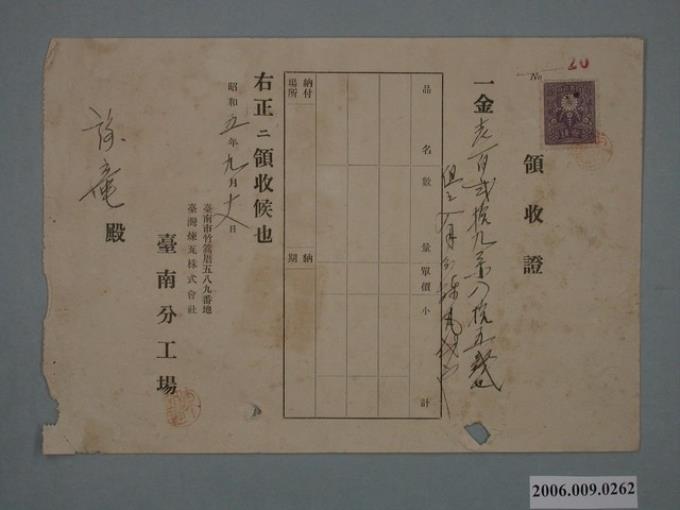 No 20
領收證
一金壱百貳拾九円八拾五錢也
但シ八月分煉瓦代
品名 數量 單價 小計
納付場所
納期
右正ニ領收候也
昭和五年九月十八日
臺南市竹篙厝五八九番地
臺灣煉瓦株式會社
臺南分工場
殿
2006.009.0262